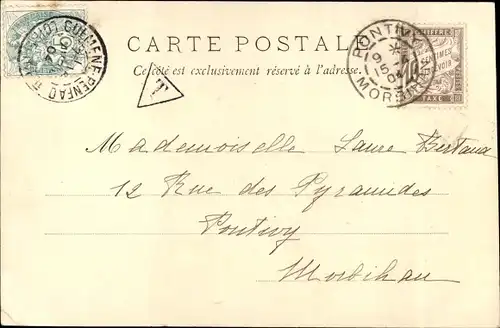 CARTE POSTALE
Ce côté est exclusivement réservé à l'adresse.
T
PONTIVY
MORBIHAN
CHIFFRE
10
TAXE
Mademoiselle Laure Bertaud
12 Rue des Pyramides
Pontivy
Morbihan